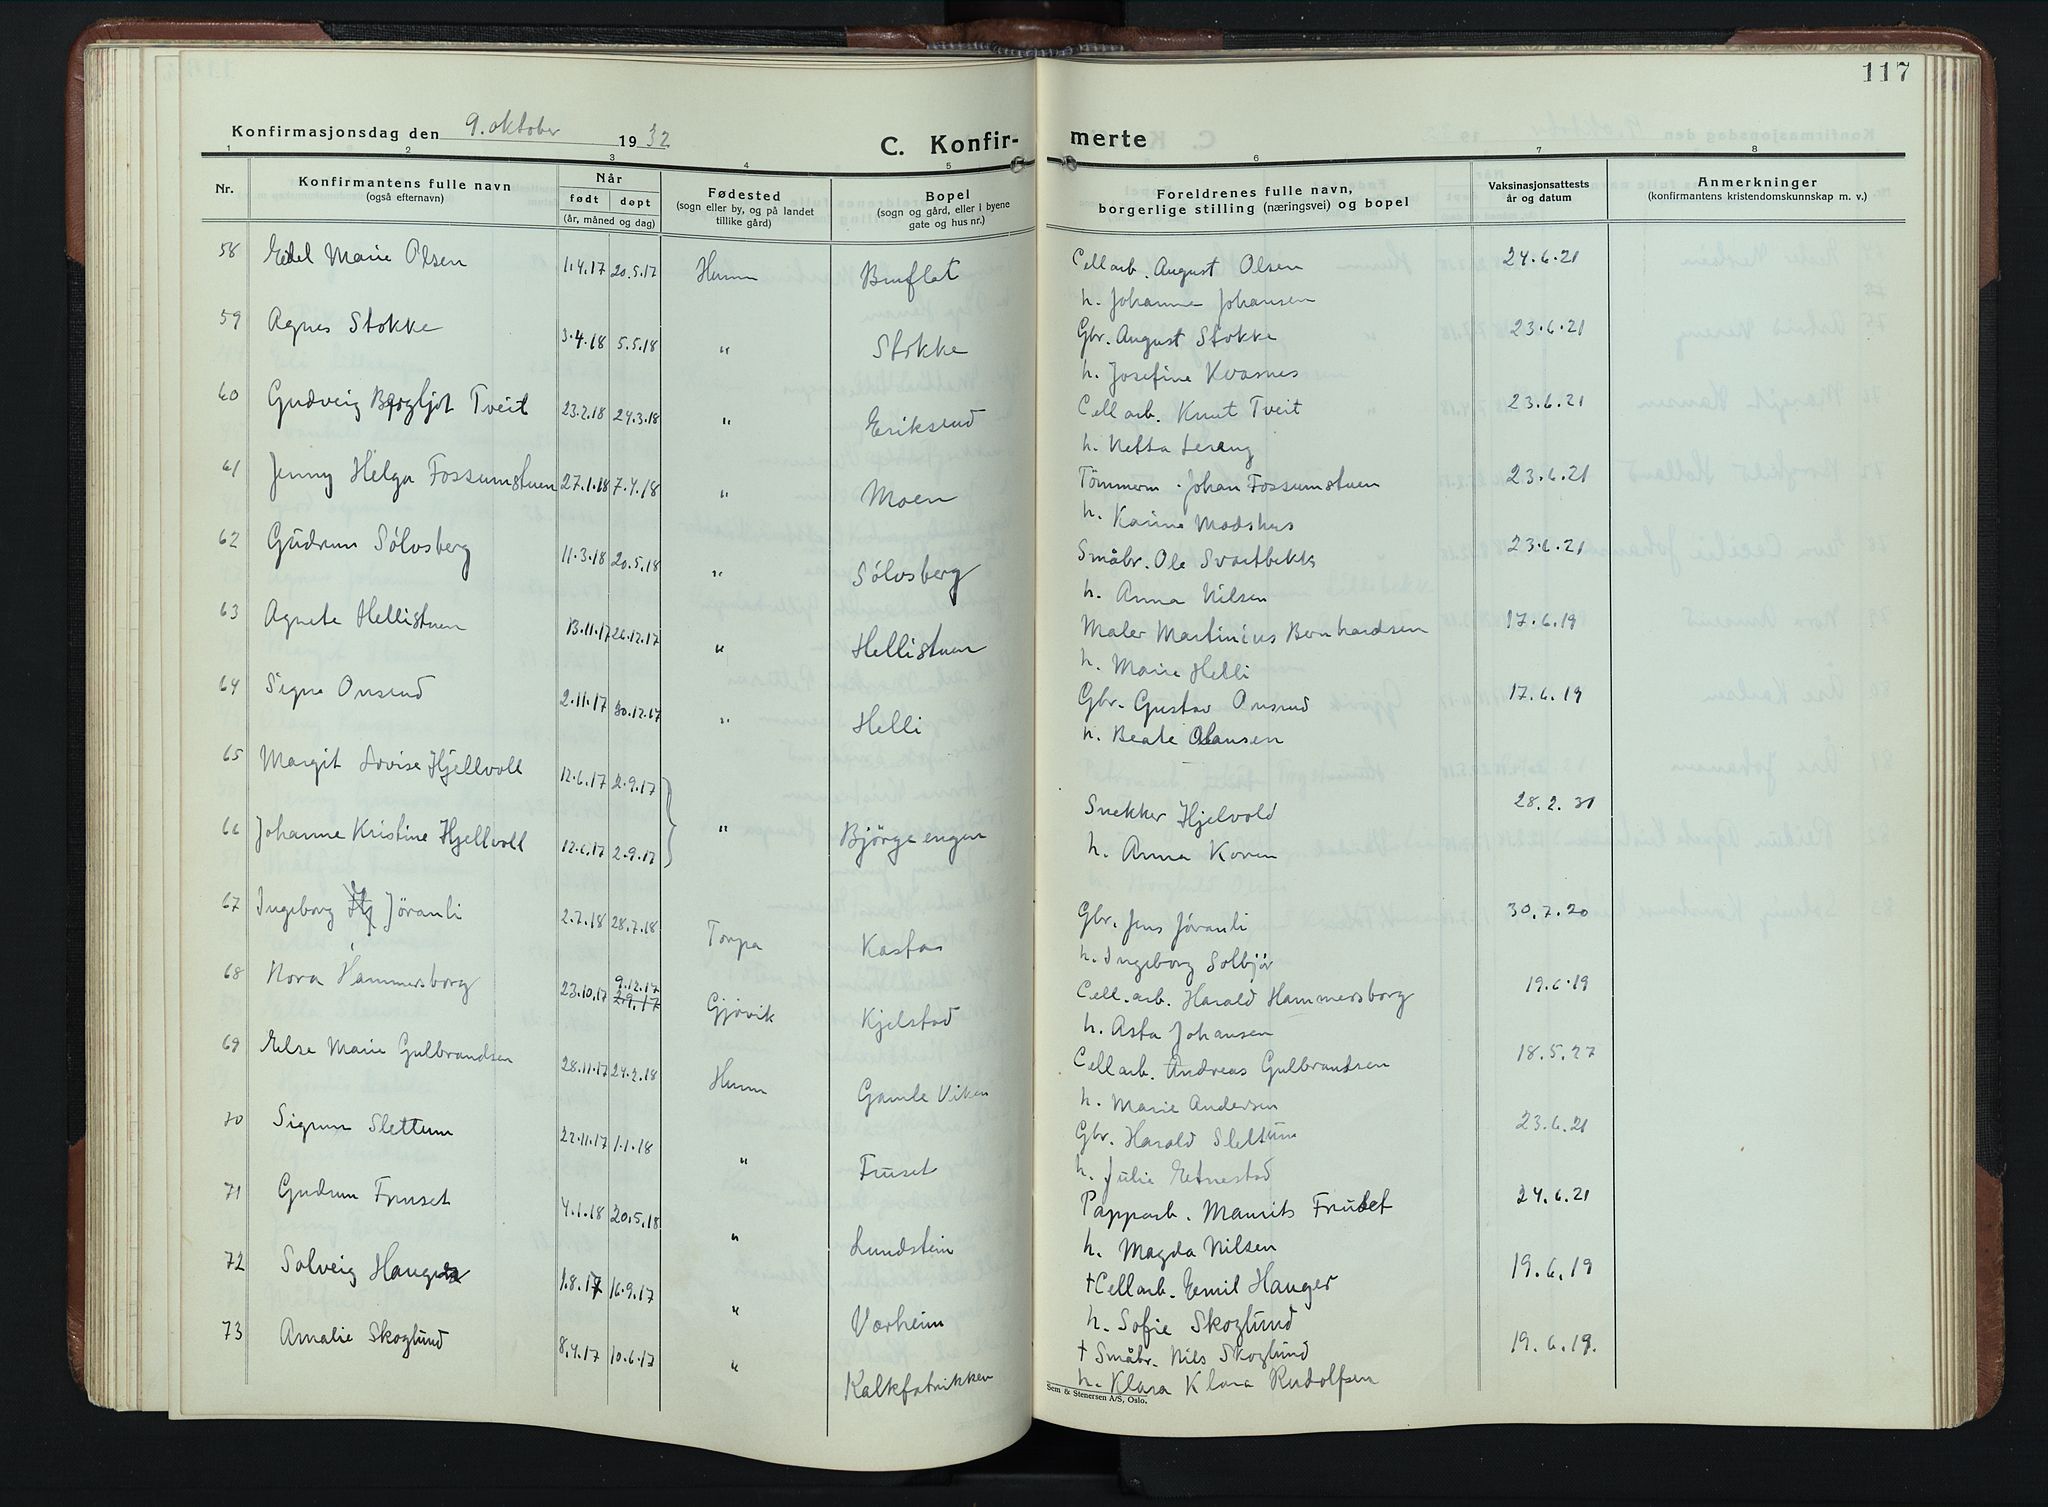 117
Konfirmasjonsdag den 9. oktober 1932
C. Konfir- merte
1 2 3 4 5 6 7 8
Nr. Konfirmantens fulle navn (også efternavn) Når født døpt (år, måned og dag) Fødested (sogn eller by, og på landet tillike gård) Bopel (sogn og gård, eller i byene gate og hus nr.) Foreldrenes fulle navn, borgerlige stilling (næringsvei) og bopel Vaksinasjonsattests år og datum Anmerkninger (konfirmantens kristendomskunnskap m. v.)
58 Edel Marie Olsen 1.4.17 20.5.17 Hunn Bruflat Cellarb. August Olsen 24.6.21
h. Johanne Johansen
59 Agnes Stokke 3.4.18 5.5.18 " Stokke Gbr. August Stokke 23.6.21
h. Josefine Kvasnes
60 Gudveig Bergljot Tveit 23.2.18 24.3.18 " Eriksrud Cellarb. Knut Tveit 23.6.21
h. Netta
61 Jenny Helga Fossumstuen 27.1.18 7.4.18 " Moen Tömmerm. Johan Fossumstuen 23.6.21
h. Karine Madshus
62 Gudrun Sølvsberg 11.3.18 20.5.18 " Sølvsberg Småbr. Ole Svartbekk 23.6.21
h. Anna Nilsen
63 Agnete Hellistuen 13.11.17 26.12.17 " Hellistuen Maler Martinius Bernhardsen 17.6.19
h. Marie Helli
64 Signe Onsrud 2.11.17 30.12.17 " Helli Gbr. Gustav Onsrud 17.6.19
h. Beate Olausen
65 Margit Lovise Hjellvoll 12.6.17 2.9.17
Snekker Hjelvold 28.2.31
66 Johanne Kristine Hjellvoll 12.6.17 2.9.17 " Bjørgeengen h. Anna Koven
67 Ingeborg Jøranli 2.7.18 28.7.18 Torpa Kastas Gbr. Jens Jøranli 30.7.20
h. Ingeborg Solbjør
68 Nora Hammersborg 23.10.17 9.12.17 2.9.17 Gjøvik Kjelstad Cell.arb. Harald Hammersborg 19.6.19
h. Asta Johansen
69 Else Marie Gulbrandsen 28.11.17 24.2.18 Hunn Gamle Viken Cellarb. Andreas Gulbrandsen 18.5.27
h. Marie Andersen
70 Sigrun Slettum 22.11.17 1.1.18 " Fruset Gbr. Harald Slettum 23.6.21
h. Julie Etnestad
71 Gudrun Fruset 4.1.18 20.5.18 " Lundstein Papparb. Maurits Fruset 24.6.21
h. Magda Nilsen
72 Solveig Hauger 1.8.17 16.9.17 " Varheim †Cellarb. Emil Hauger 19.6.19
h. Sofie Skoglund
73 Amalie Skoglund 8.4.17 10.6.17 " Kalkfabrikken † Småbr. Nils Skoglund 19.6.19.
h. Klara Klara Rudolfsen
Sem & Stenersen A/S, Oslo.